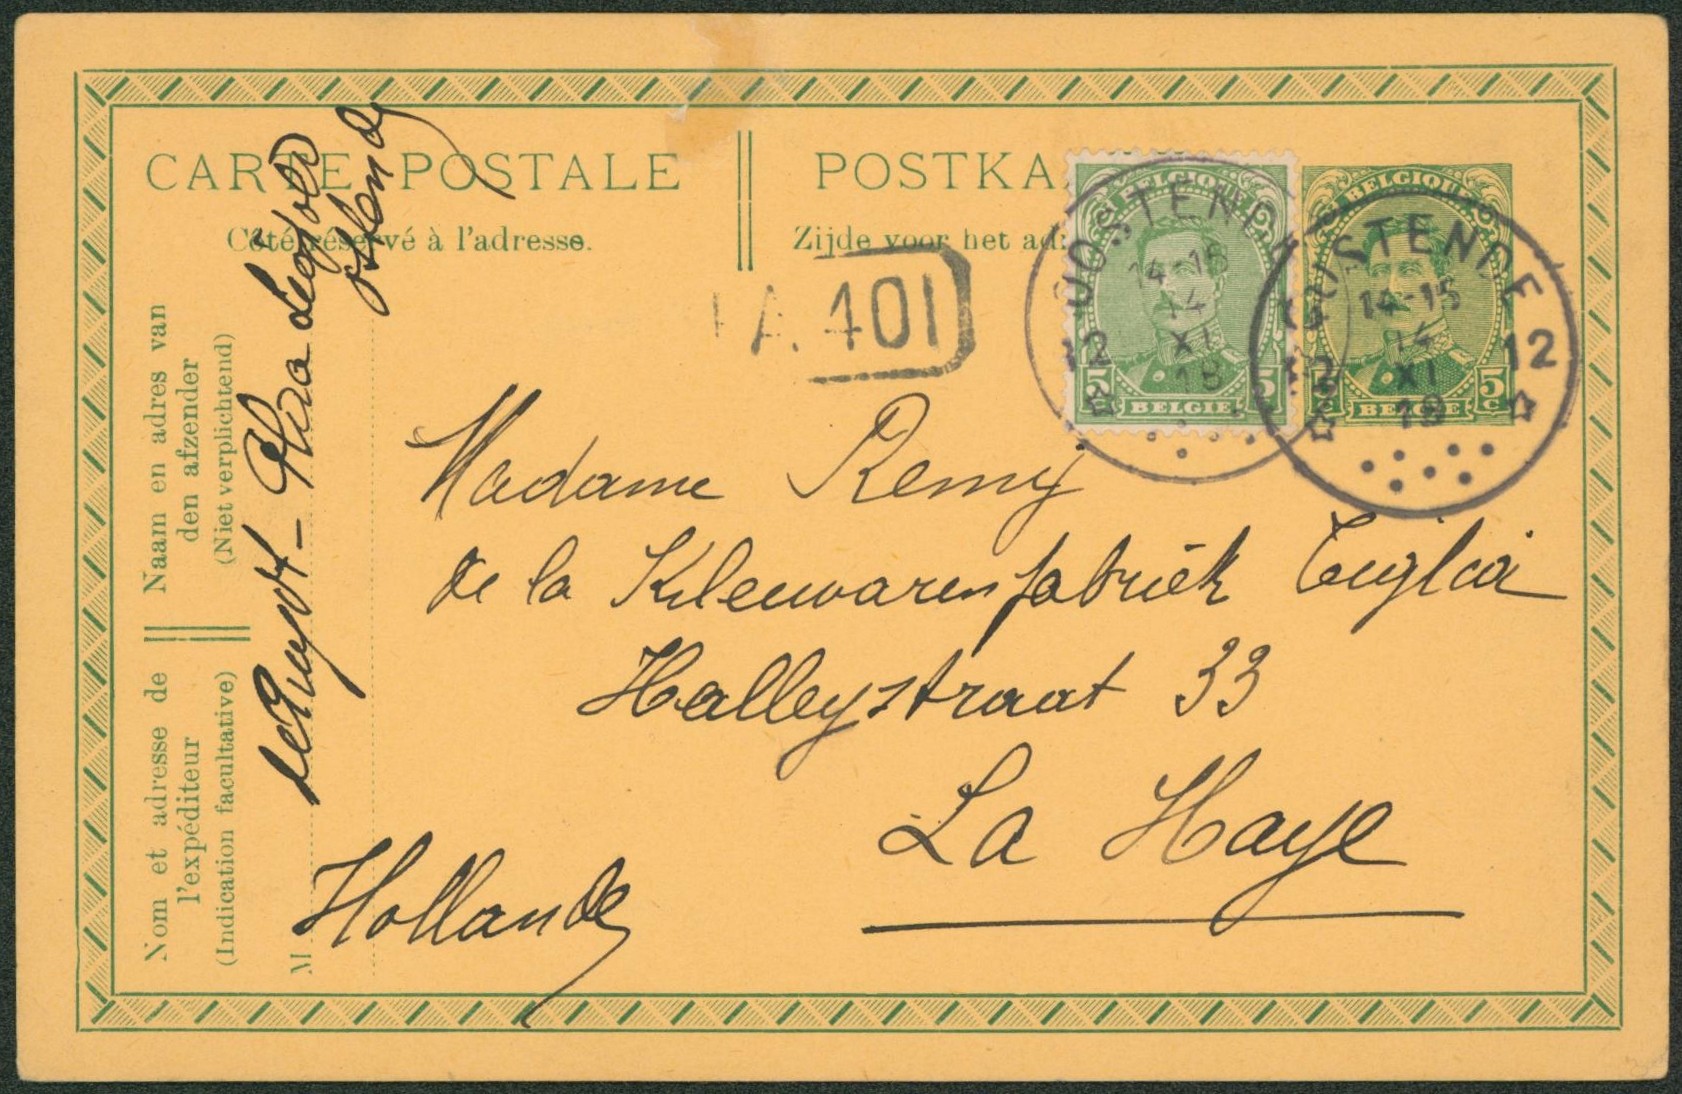 CARTE POSTALE
Côté réservé à l'adresse.
POSTKA
Zijde voor het ad
A. 401
BELGIQUE
5
5
BELGIE
OOSTENDE
14-15
14
XI
18
12
BELGIQUE
5c
BELGIE
OOSTENDE
14-15
14
XI
18
12
12
Naam en adres van
den afzender
(Niet verplichtend)
Nom et adresse de
l'expéditeur
(Indication facultative)
M
Léopold
Ostende
Madame Remy
de la Kleuwarenfabriek
Halleystraat 33
La Haye
Hollande